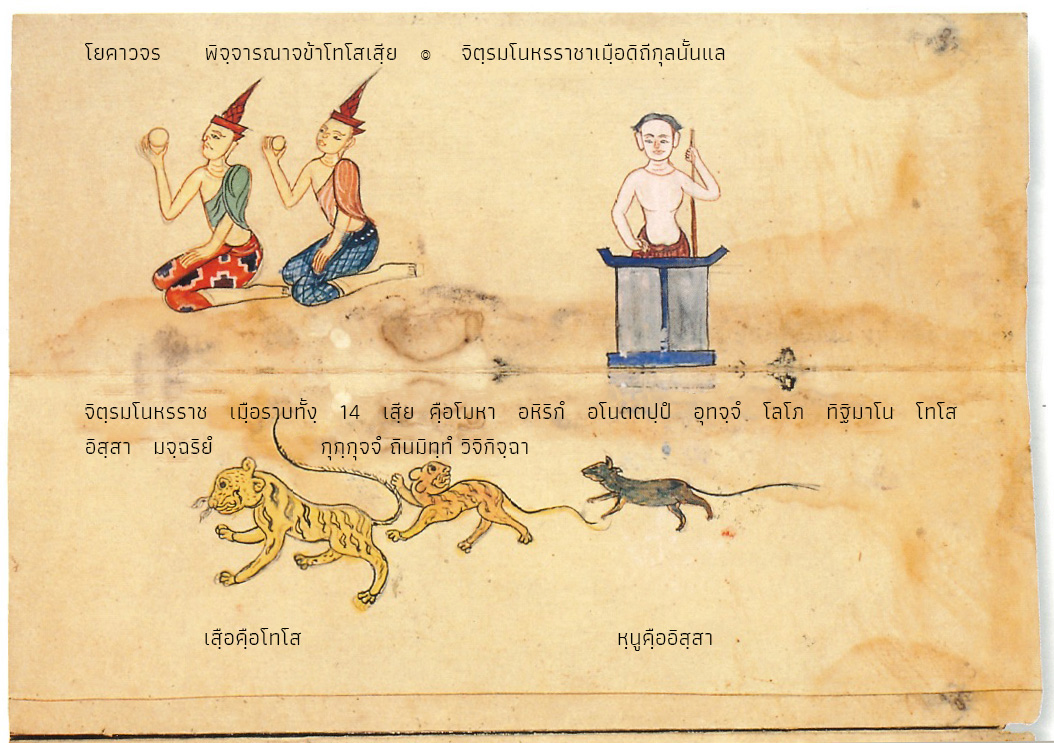 โยคาวจร พิจฺจารณาจข้าโทโสเสฺีย ๏ จิตฺรมโนหรราชาเมฺือดิถีกุลนั้นแล
จิตฺรมโนหรราช เมฺือราบทั้งฺ 14 เสฺีย คฺือโมหา อหิริกํ อโนตตปฺปํ อุทจฺจํ โลโภ ทิฐิมาโน โทโส
อิสฺสา มจฺฉริยํ กุกฺกุจจํ ถินมิทฺทํ วิจิกิจฺฉา
เสฺือคฺือโทโส
หฺนูคฺืออิสฺสา